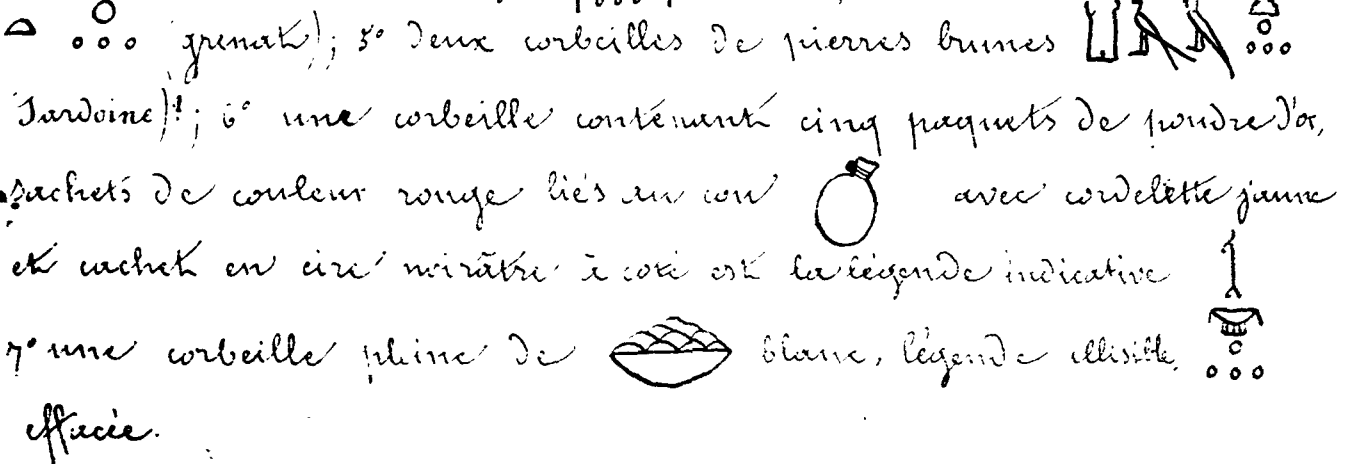 grenat); 5° deux corbeilles de pierres brunes
Sardoine)!; 6° une corbeille contenant cinq paquets de poudre d'or,
sachets de couleur rouge liés au cou avec cordelette jaune
et cachet en cire noirâtre à coté est la légende indicative
7° une corbeille pleine de blanc, légende illisible,
effacée.